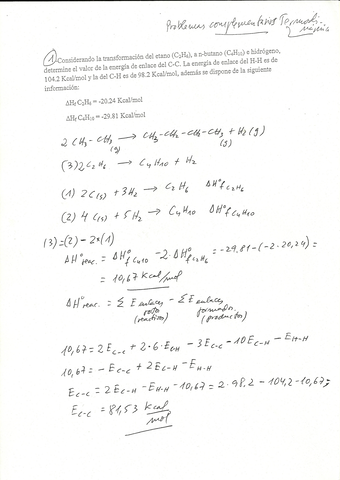 Problemas complementarios Termoquímica
1 Considerando la transformación del etano (C₂H₆), a n-butano (C₄H₁₀) e hidrógeno,
determine el valor de la energía de enlace del C-C. La energía de enlace del H-H es de
104.2 Kcal/mol y la del C-H es de 98.2 Kcal/mol, además se dispone de la siguiente
información:
ΔHf C₂H₆ = -20.24 Kcal/mol
ΔHf C₄H₁₀ = -29.81 Kcal/mol
2 CH₃-CH₃ (g) → CH₃-CH₂-CH₂-CH₃ (g) + H₂ (g)
(3) 2 C₂H₆ → C₄H₁₀ + H₂
(1) 2 C(s) + 3H₂ → C₂H₆ ΔH°f C₂H₆
(2) 4 C(s) + 5H₂ → C₄H₁₀ ΔH°f C₄H₁₀
(3) = (2) - 2*(1)
ΔH°reac. = ΔH°f C₄H₁₀ - 2·ΔH°f C₂H₆ = -29,81 - (-2·20,24) =
= 10,67 Kcal/mol
ΔH°reac. = Σ E enlaces roto (reactivo) - Σ E enlaces formado. (productos)
10,67 = 2E C-C + 2·6·E C-H - 3E C-C - 10E C-H - E H-H
10,67 = - E C-C + 2E C-H - E H-H
E C-C = 2E C-H - E H-H - 10,67 = 2·98,2 - 104,2 - 10,67 =
E C-C = 81,53 Kcal/mol